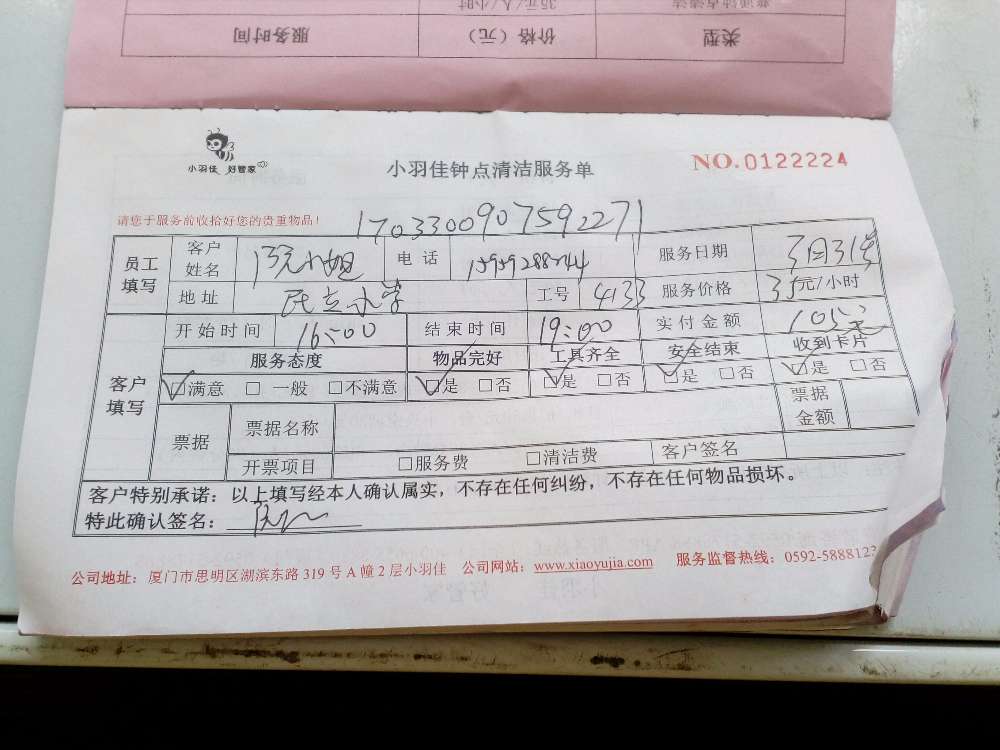 普通钟点清洁 35元/人/小时
类型 价格（元） 服务时间
小羽佳 好管家
小羽佳钟点清洁服务单
NO.0122224
请您于服务前收拾好您的贵重物品！
1703300907592271
员工填写 客户姓名 阮小姐 电话 15959288744 服务日期 3月31号
地址 民立小学 工号 4133 服务价格 35元/小时
客户填写 开始时间 16:00 结束时间 19:00 实付金额 105元
服务态度 物品完好 工具齐全 安全结束 收到卡片
☑满意 □一般 □不满意 ☑是 □否 ☑是 □否 ☑是 □否 ☑是 □否
票据 票据名称 票据金额
开票项目 □服务费 □清洁费 客户签名
客户特别承诺：以上填写经本人确认属实，不存在任何纠纷，不存在任何物品损坏。
特此确认签名：
公司地址：厦门市思明区湖滨东路 319 号 A 幢 2 层小羽佳 公司网站：www.xiaoyujia.com 服务监督热线：0592-5888123